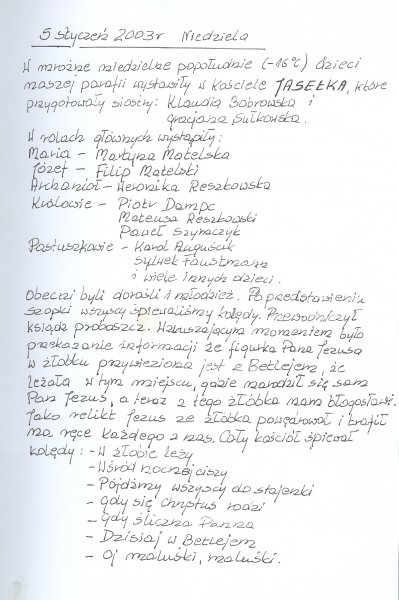 5 styczeń 2003r Niedziela
W mroźne niedzielne popołudnie (-16°C) dzieci
naszej parafii wystawiły w kościele JASEŁKA, które
przygotowały siostry: Klaudia Bobrowska i
Gracjana Sułkowska.
W rolach głównych wystąpiły:
Maria - Martyna Matelska
Józef - Filip Matelski
Archanioł - Weronika Reszkowska
Królowie - Piotr Dampc
Mateusz Reszkowski
Paweł Szynaczyk
Pastuszkowie - Karol Auguścik
Sylwek Faustmann
i wiele innych dzieci.
Obecni byli dorośli i młodzież. Po przedstawieniu
szopki wszyscy śpiewaliśmy kolędy. Przewodniczył
ksiądz proboszcz. Wzruszającym momentem było
przekazanie informacji że figurka Pana Jezusa
w żłóbku przywieziona jest z Betlejem, że
leżała w tym miejscu, gdzie narodził się sam
Pan Jezus, a teraz z tego żłóbka nam błogosławi.
Jako relikt Jezus ze żłóbka powędrował i trafił
na ręce każdego z nas. Cały kościół śpiewał
kolędy: - W żłobie leży
- Wśród nocnej ciszy
- Pójdźmy wszyscy do stajenki
- Gdy się Chrystus rodzi
- Gdy śliczna Panna
- Dzisiaj w Betlejem
- Oj maluśki, maluśki.